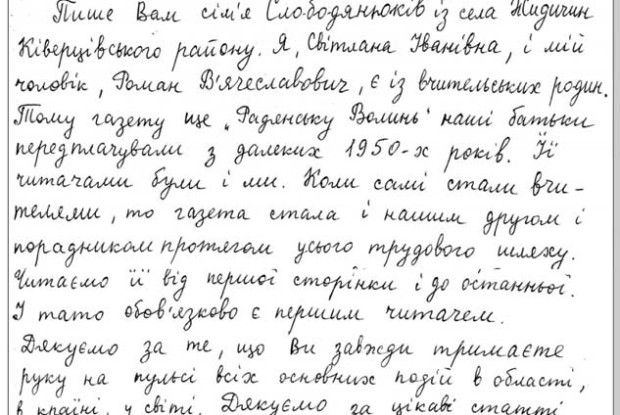 Пише Вам сім'я Слободянюків із села Жидичин
Ківерцівського району. Я, Світлана Іванівна, і мій
чоловік, Роман В'ячеславович, є із вчительських родин.
Тому газету ще „Радянську Волинь" наші батьки
передплачували з далеких 1950-х років. Її
читачами були і ми. Коли самі стали вчи-
телями, то газета стала і нашим другом і
порадником протягом усього трудового шляху.
Читаємо її від першої сторінки і до останньої.
І тато обов'язково є першим читачем.
Дякуємо за те, що Ви завжди тримаєте
руку на пульсі всіх основних подій в області,
в країні, у світі. Дякуємо за цікаві статті